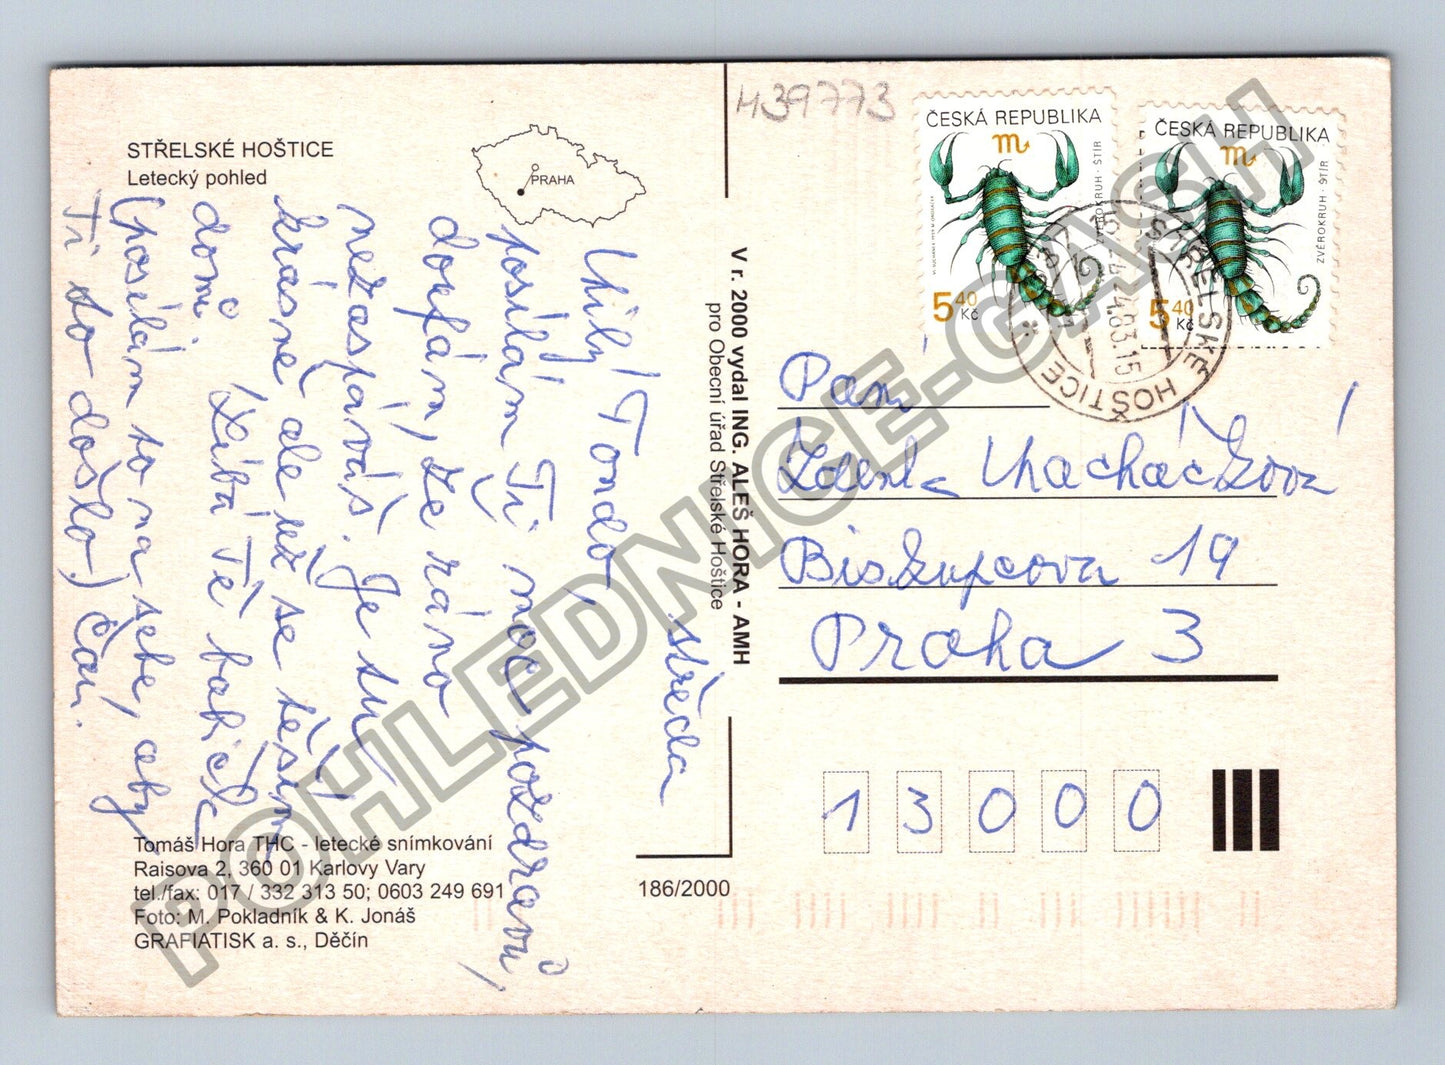 STŘELSKÉ HOŠTICE
Letecký pohled
PRAHA
středa
Milý Tondo,
posílám Ti moc pozdravů,
doufám, že ráno
nezaspáváš. Je tu
krásně ale už se těším
domů.
Líbá Tě babička
(posílám to na sebe, aby
Ti to došlo) Čau.
Tomáš Hora THC - letecké snímkování
Raisova 2, 360 01 Karlovy Vary
tel./fax: 017 / 332 313 50; 0603 249 691
Foto: M. Pokladník & K. Jonáš
GRAFIATISK a. s., Děčín
186/2000
V r. 2000 vydal ING. ALEŠ HORA - AMH
pro Obecní úřad Střelské Hoštice
439773
ČESKÁ REPUBLIKA
ZVĚROKRUH · ŠTÍR
5 40 Kč
ČESKÁ REPUBLIKA
ZVĚROKRUH · ŠTÍR
5 40 Kč
STŘELSKÉ HOŠTICE
24.83.15
Paní
Zdenka
Biskupcova 19
Praha 3
13000
POHLEDNICE-CASH